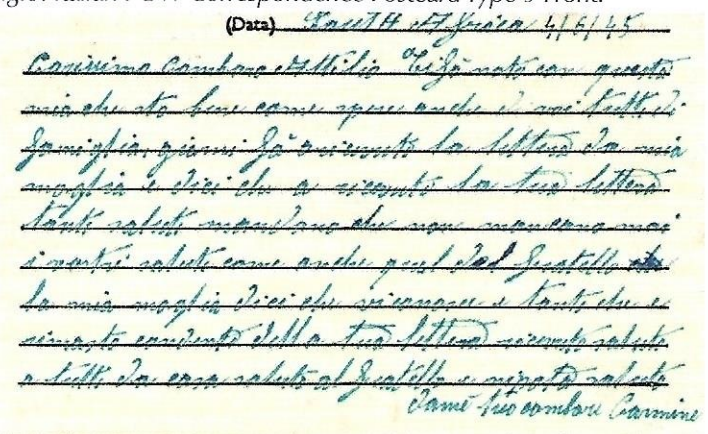 (Data) South Africa 4/6/45
Carissimo Combare Attilio Ti fò noto con questa
mia che sto bene come spero anche di voi tutti di
famiglia, giorni fà o ricevuto la lettera da mia
moglia e dici che a ricevuto la tua lettera
tanti saluti mandano che non mancano mai
i vostri saluti come anche quel dal fratello
la mia moglia dici che e tanto che e
rimasto della tua lettera ricevuto saluto
a tutti da casa saluto al fratello e nipota saluto
Damè tuo combare Carmine